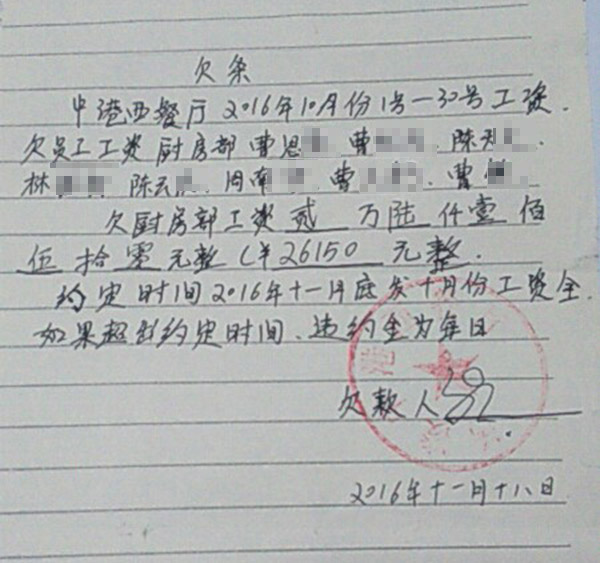 欠条
中港西餐厅 2016年10月份1号—30号工资.
欠员工工资 厨房部 曹恩 曹 陈天.
林 陈云. 周南 曹 . 曹
欠厨房部工资 贰 万陆 仟壹 佰
伍 拾 零 元整 (¥26150 元整.
约定时间2016年十一月底发十月份工资全.
如果超出约定时间、违约金为每日
欠款人
2016年十一月十八日